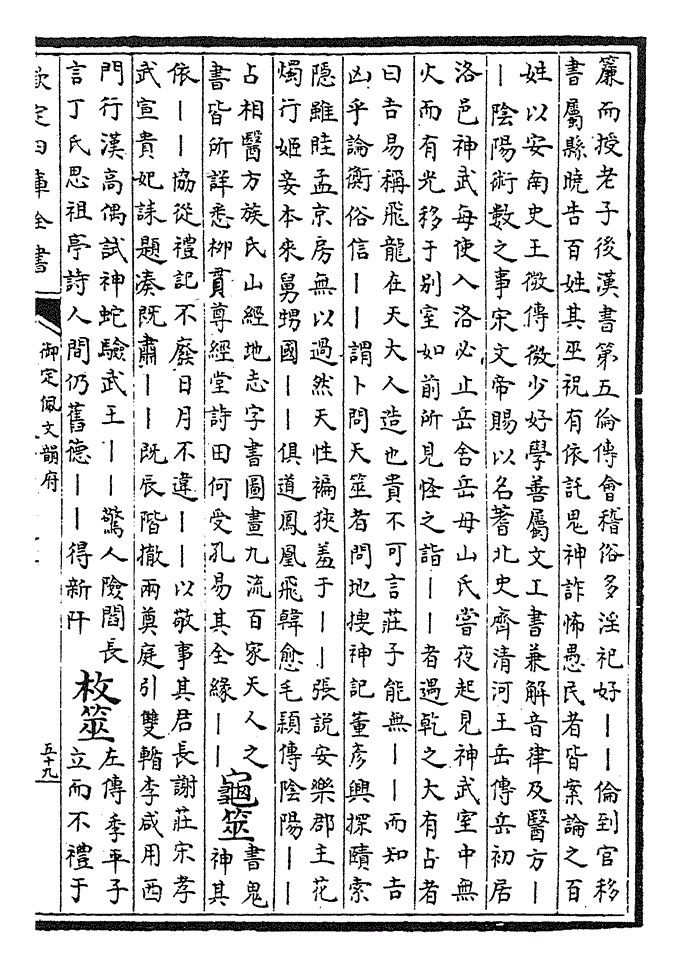 簾而授老子後漢書第五倫傳會稽俗多淫祀好｜｜倫到官移
書屬縣曉告百姓其巫祝有依託鬼神詐怖愚民者皆案論之百
姓以安南史王微傳微少好學善屬文工書兼解音律及醫方｜
｜陰陽術數之事宋文帝賜以名蓍北史齊清河王岳傳岳初居
洛邑神武每使入洛必止岳舍岳母山氏嘗夜起見神武室中無
火而有光移于別室如前所見怪之詣｜｜者遇乾之大有占者
曰吉易稱飛龍在天大人造也貴不可言莊子能無｜｜而知吉
凶乎論衡俗信｜｜謂卜問天筮者問地搜神記董彦興探賾索
隱雖眭孟京房無以過然天性褊狹羞于｜｜張說安樂郡主花
燭行姬妾本來舅甥國｜｜俱道鳳凰飛韓愈毛穎傳陰陽｜｜
占相醫方族氏山經地志字書圖畫九流百家天人之
書皆所詳悉柳貫尊經堂詩田何受孔易其全緣｜｜
龜筮
書鬼
神其
依｜｜協從禮記不廢日月不違｜｜以敬事其君長謝莊宋孝
武宣貴妃誄題湊既肅｜｜既辰階撤兩奠庭引雙輴李咸用西
門行漢高偶試神蛇驗武王｜｜驚人險閻長
言丁氏思祖亭詩人間仍舊德｜｜得新阡
枚筮
左傳季平子
立而不禮于
欽定四庫全書
御定佩文韻府
五十九